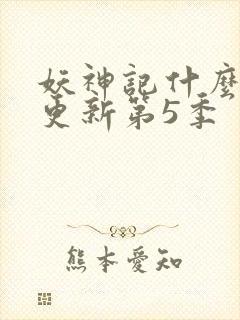 妖神記什麼
更新第5季
熊本愛知